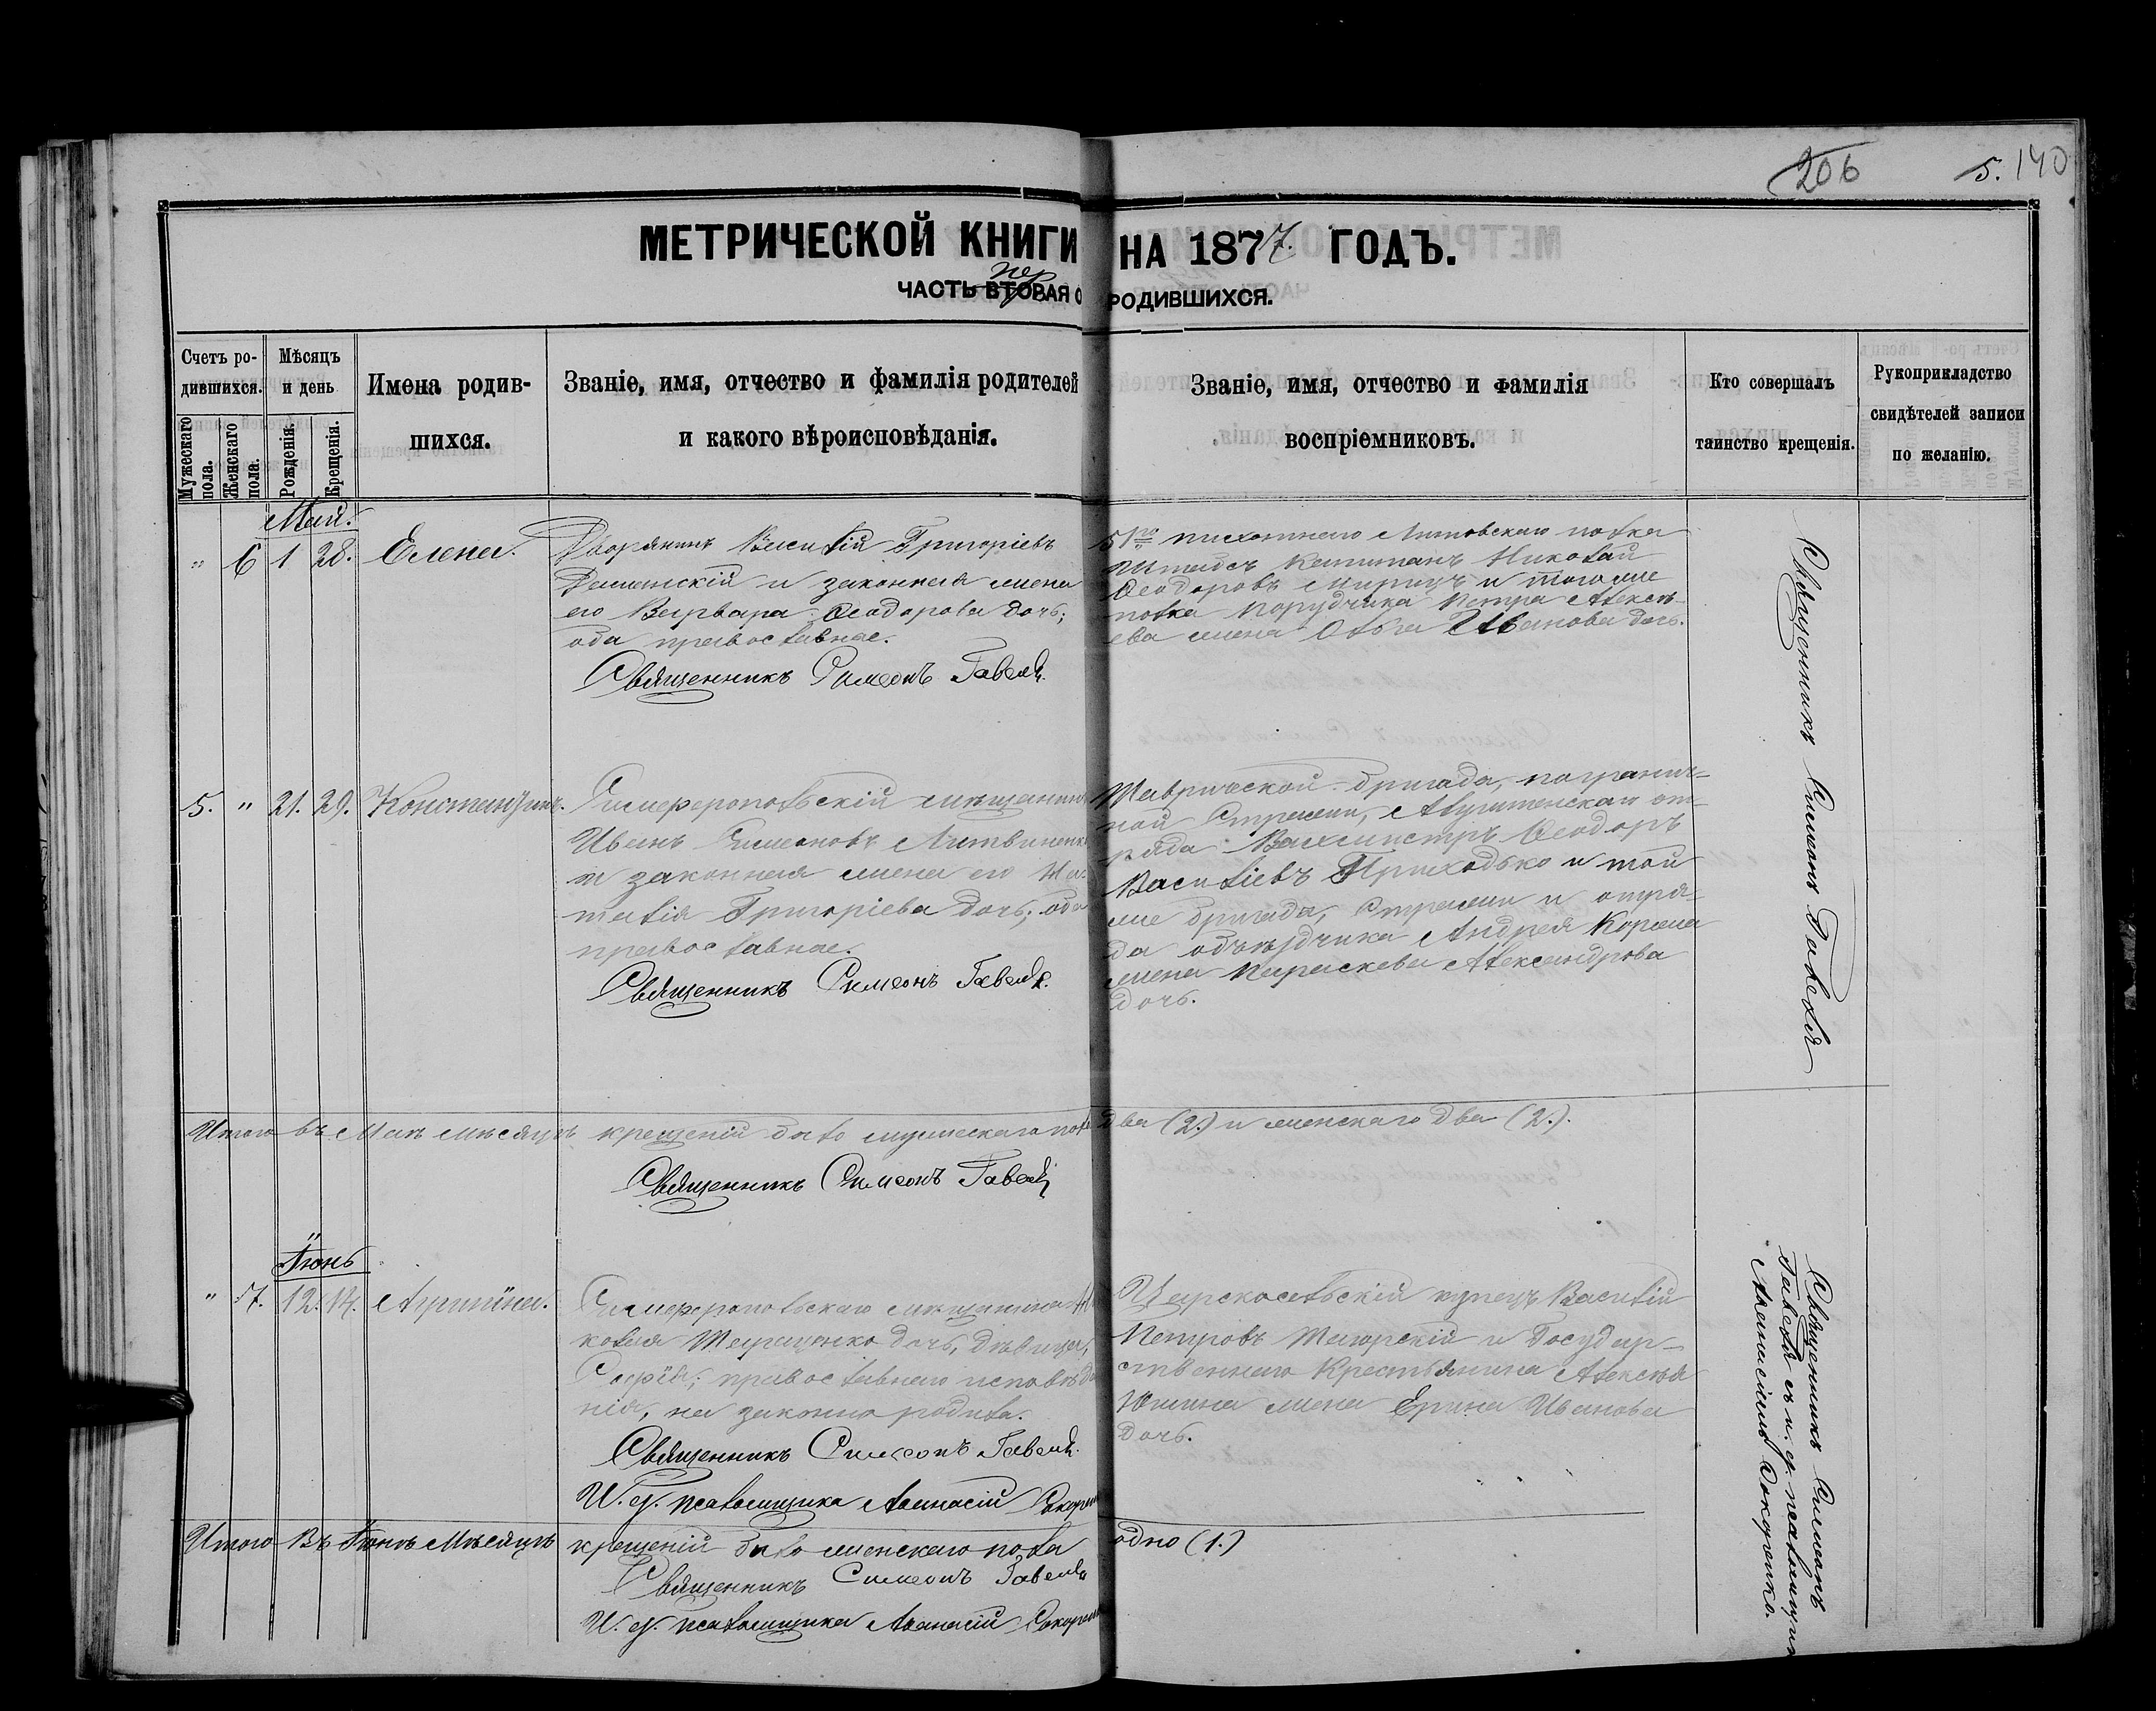 206
5. 140
МЕТРИЧЕСКОЙ КНИГИ НА 1877. ГОДЪ.
пер
ЧАСТЬ ВТОРАЯ О РОДИВШИХСЯ.
Счетъ ро-
дившихся.
Мужескаго пола.
Женскаго пола.
Мѣсяцъ
и день
Рожденія.
Крещенія.
Имена родив-
шихся.
Званіе, имя, отчество и фамилія родителей
и какого вѣроисповѣданія.
Званіе, имя, отчество и фамилія
воспріемниковъ.
Кто совершалъ
таинство крещенія.
Рукоприкладство
свидѣтелей записи
по желанію.
Май.
" 6 1 28. Елена.
Дворянинъ Василій Григоріевъ
и законная жена
его Варвара Ѳеодорова дочь;
оба православные.
Священникъ Симеонъ Гавель
51го пѣхотнаго Литовскаго полка
Штабсъ Капитанъ Николай
Ѳеодоровъ и того же
полка Порудчика Петра Алексѣ-
ева жена Ольга Иванова дочь.
Священникъ Симеонъ Гавеля
5. " 21. 29. Константинъ.
Симферопольскій мѣщанинъ
Иванъ Симеоновъ Литвиненко
и законная жена его На-
талія Григоріева дочь; оба
православные.
Священникъ Симеонъ Гавеля.
Таврической бригады, погранич-
ной Стражи, Алуштенскаго от-
ряда Вахмистръ Ѳеодоръ
Василіевъ Приходько и той
же бригады, Стражи и отря-
да объѣздчика Андрея
жена Параскева Александрова
дочь.
Итого въ Маѣ мѣсяцѣ крещеній было мужескаго пола два (2.) и женскаго два (2.).
Священникъ Симеонъ Гавель
Іюнь
" 7. 12. 14. Агрипина.
Симферопольскаго мѣщанина
дочь, дѣвица,
Софія; православнаго исповѣда
нія, не законно родила.
Священникъ Симеонъ Гавель.
И. д. псаломщика Аѳанасій
Царскосельскій купецъ Василій
Петровъ и Государ-
ственнаго Крестьянина Алексѣя
жена Ерина Иванова
дочь.
Священникъ Симеонъ
Гавеля съ и. д. псаломщика
Аѳанасіемъ
Итого въ Іюнѣ Мѣсяцѣ крещеній было женскаго пола одно (1.)
Священникъ Симеонъ Гавель
И. д. псаломщика Аѳанасій